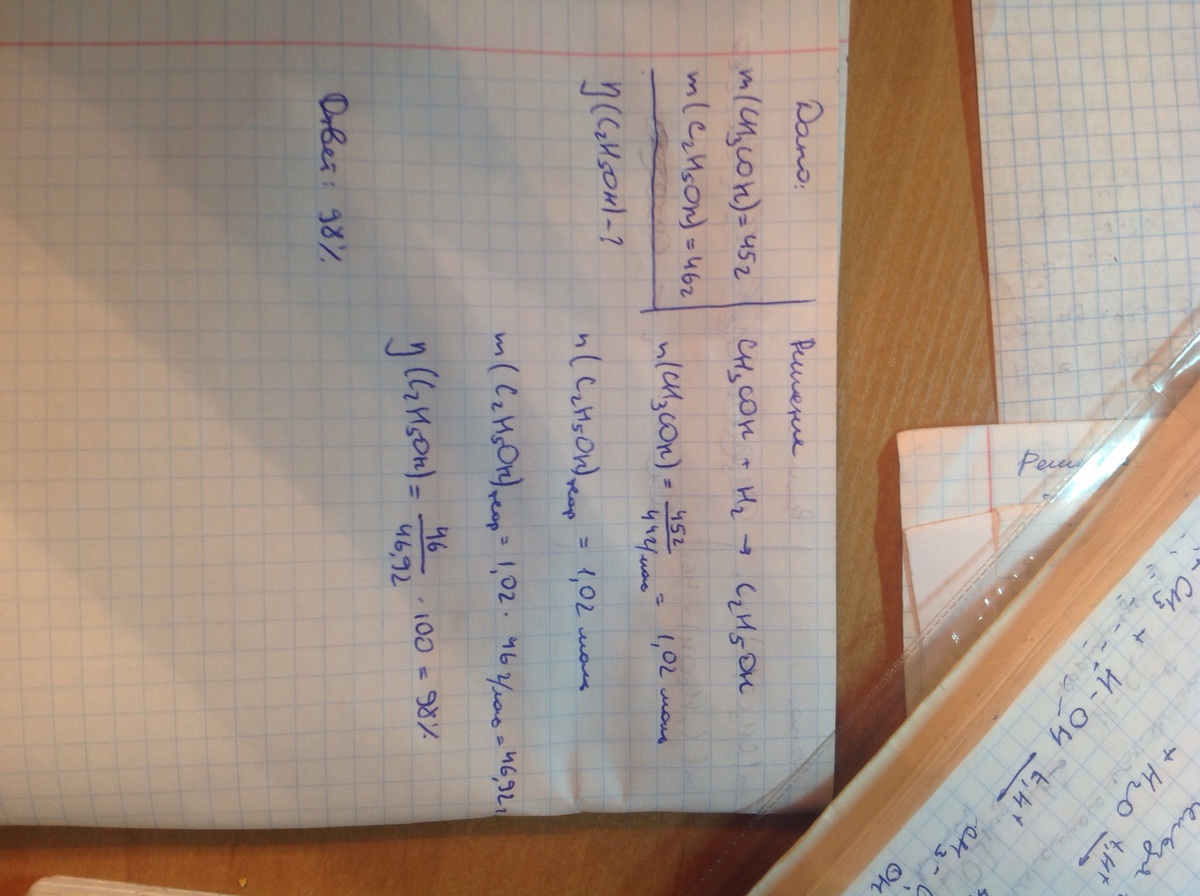 Дано:
m(CH₃COH)=45г
m(C₂H₅OH)=46г
η(C₂H₅OH)-?
Решение
CH₃COH + H₂ → C₂H₅OH
n(CH₃COH) = 45г / 44г/моль = 1,02 моль
n(C₂H₅OH)теор = 1,02 моль
m(C₂H₅OH)теор = 1,02 · 46г/моль = 46,92г
η(C₂H₅OH) = 46 / 46,92 · 100 = 98%
Ответ: 98%
CH₃
H-OH
+ H₂O
t, H⁺
t, H⁺
CH₃-
OH